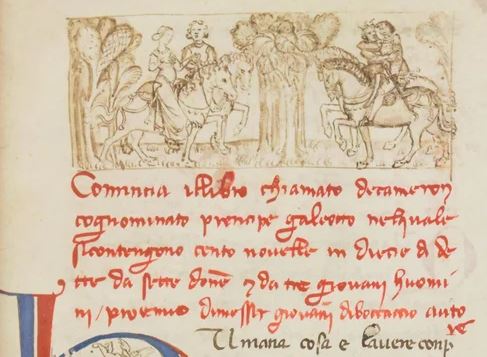 Comincia illibro chiamato decameron
cognominato prencipe galeotto nelquale
sicontengono cento novelle in diece di de
tte da sette done ⁊ da tre giovani huomi
ni / proemio dimesser giovani diboccaccio auto
re
Umana cosa e lavere conp